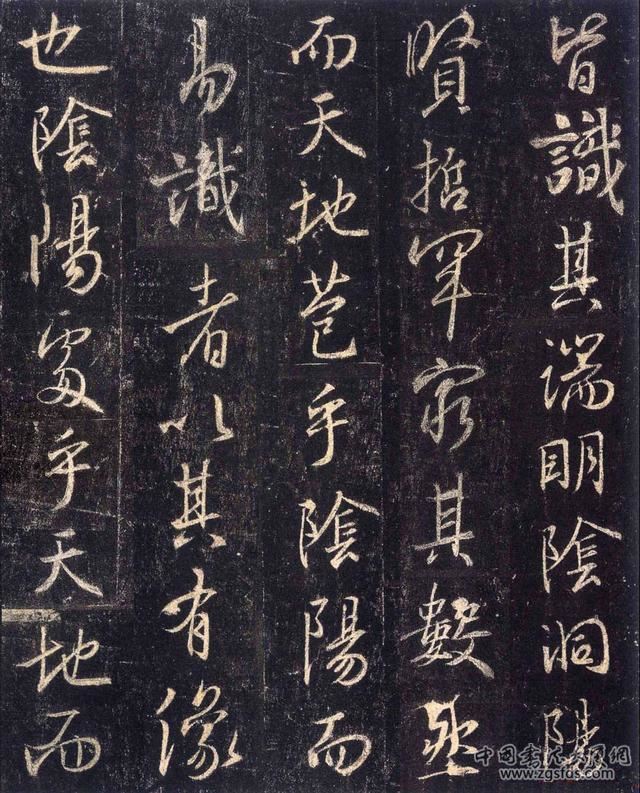 皆識其端明陰洞陽
賢哲罕窮其數然
而天地苞乎陰陽而
易識者以其有像
也陰陽處乎天地而
中国书法大展网
www.zgsfds.com